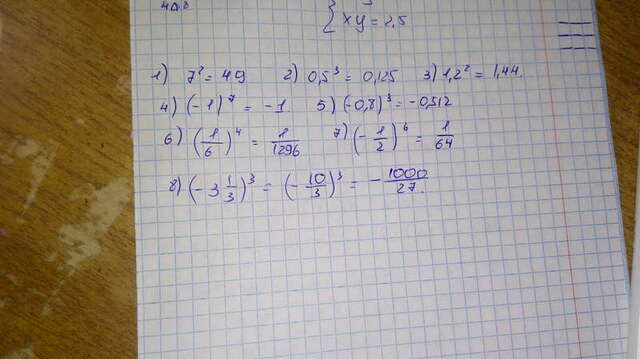 xy = 2,5
1) 7² = 49 2) 0,5³ = 0,125 3) 1,2² = 1,44
4) (-1)⁷ = -1 5) (-0,8)³ = -0,512
6) (1/6)⁴ = 1/1296 7) (-1/2)⁶ = 1/64
8) (-3 1/3)³ = (-10/3)³ = -1000/27